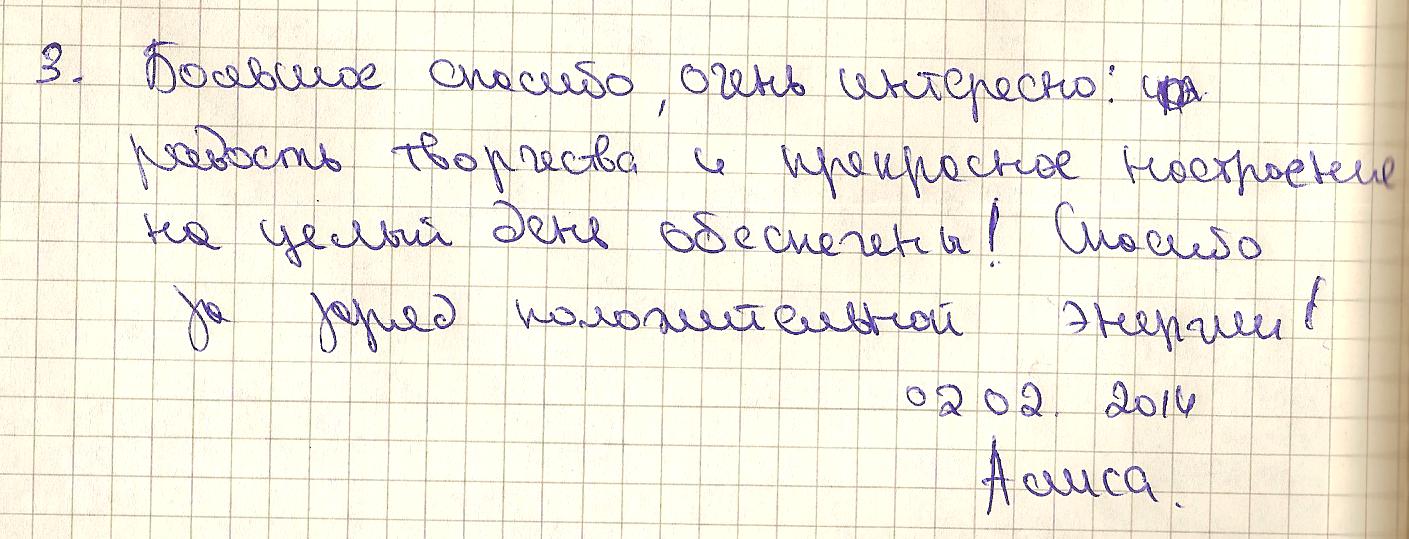 3. Большое спасибо, очень интересно:
радость творчества и прекрасное настроение
на целый день обеспечены! Спасибо
за заряд положительной энергии!
02 02. 2014
Алиса.